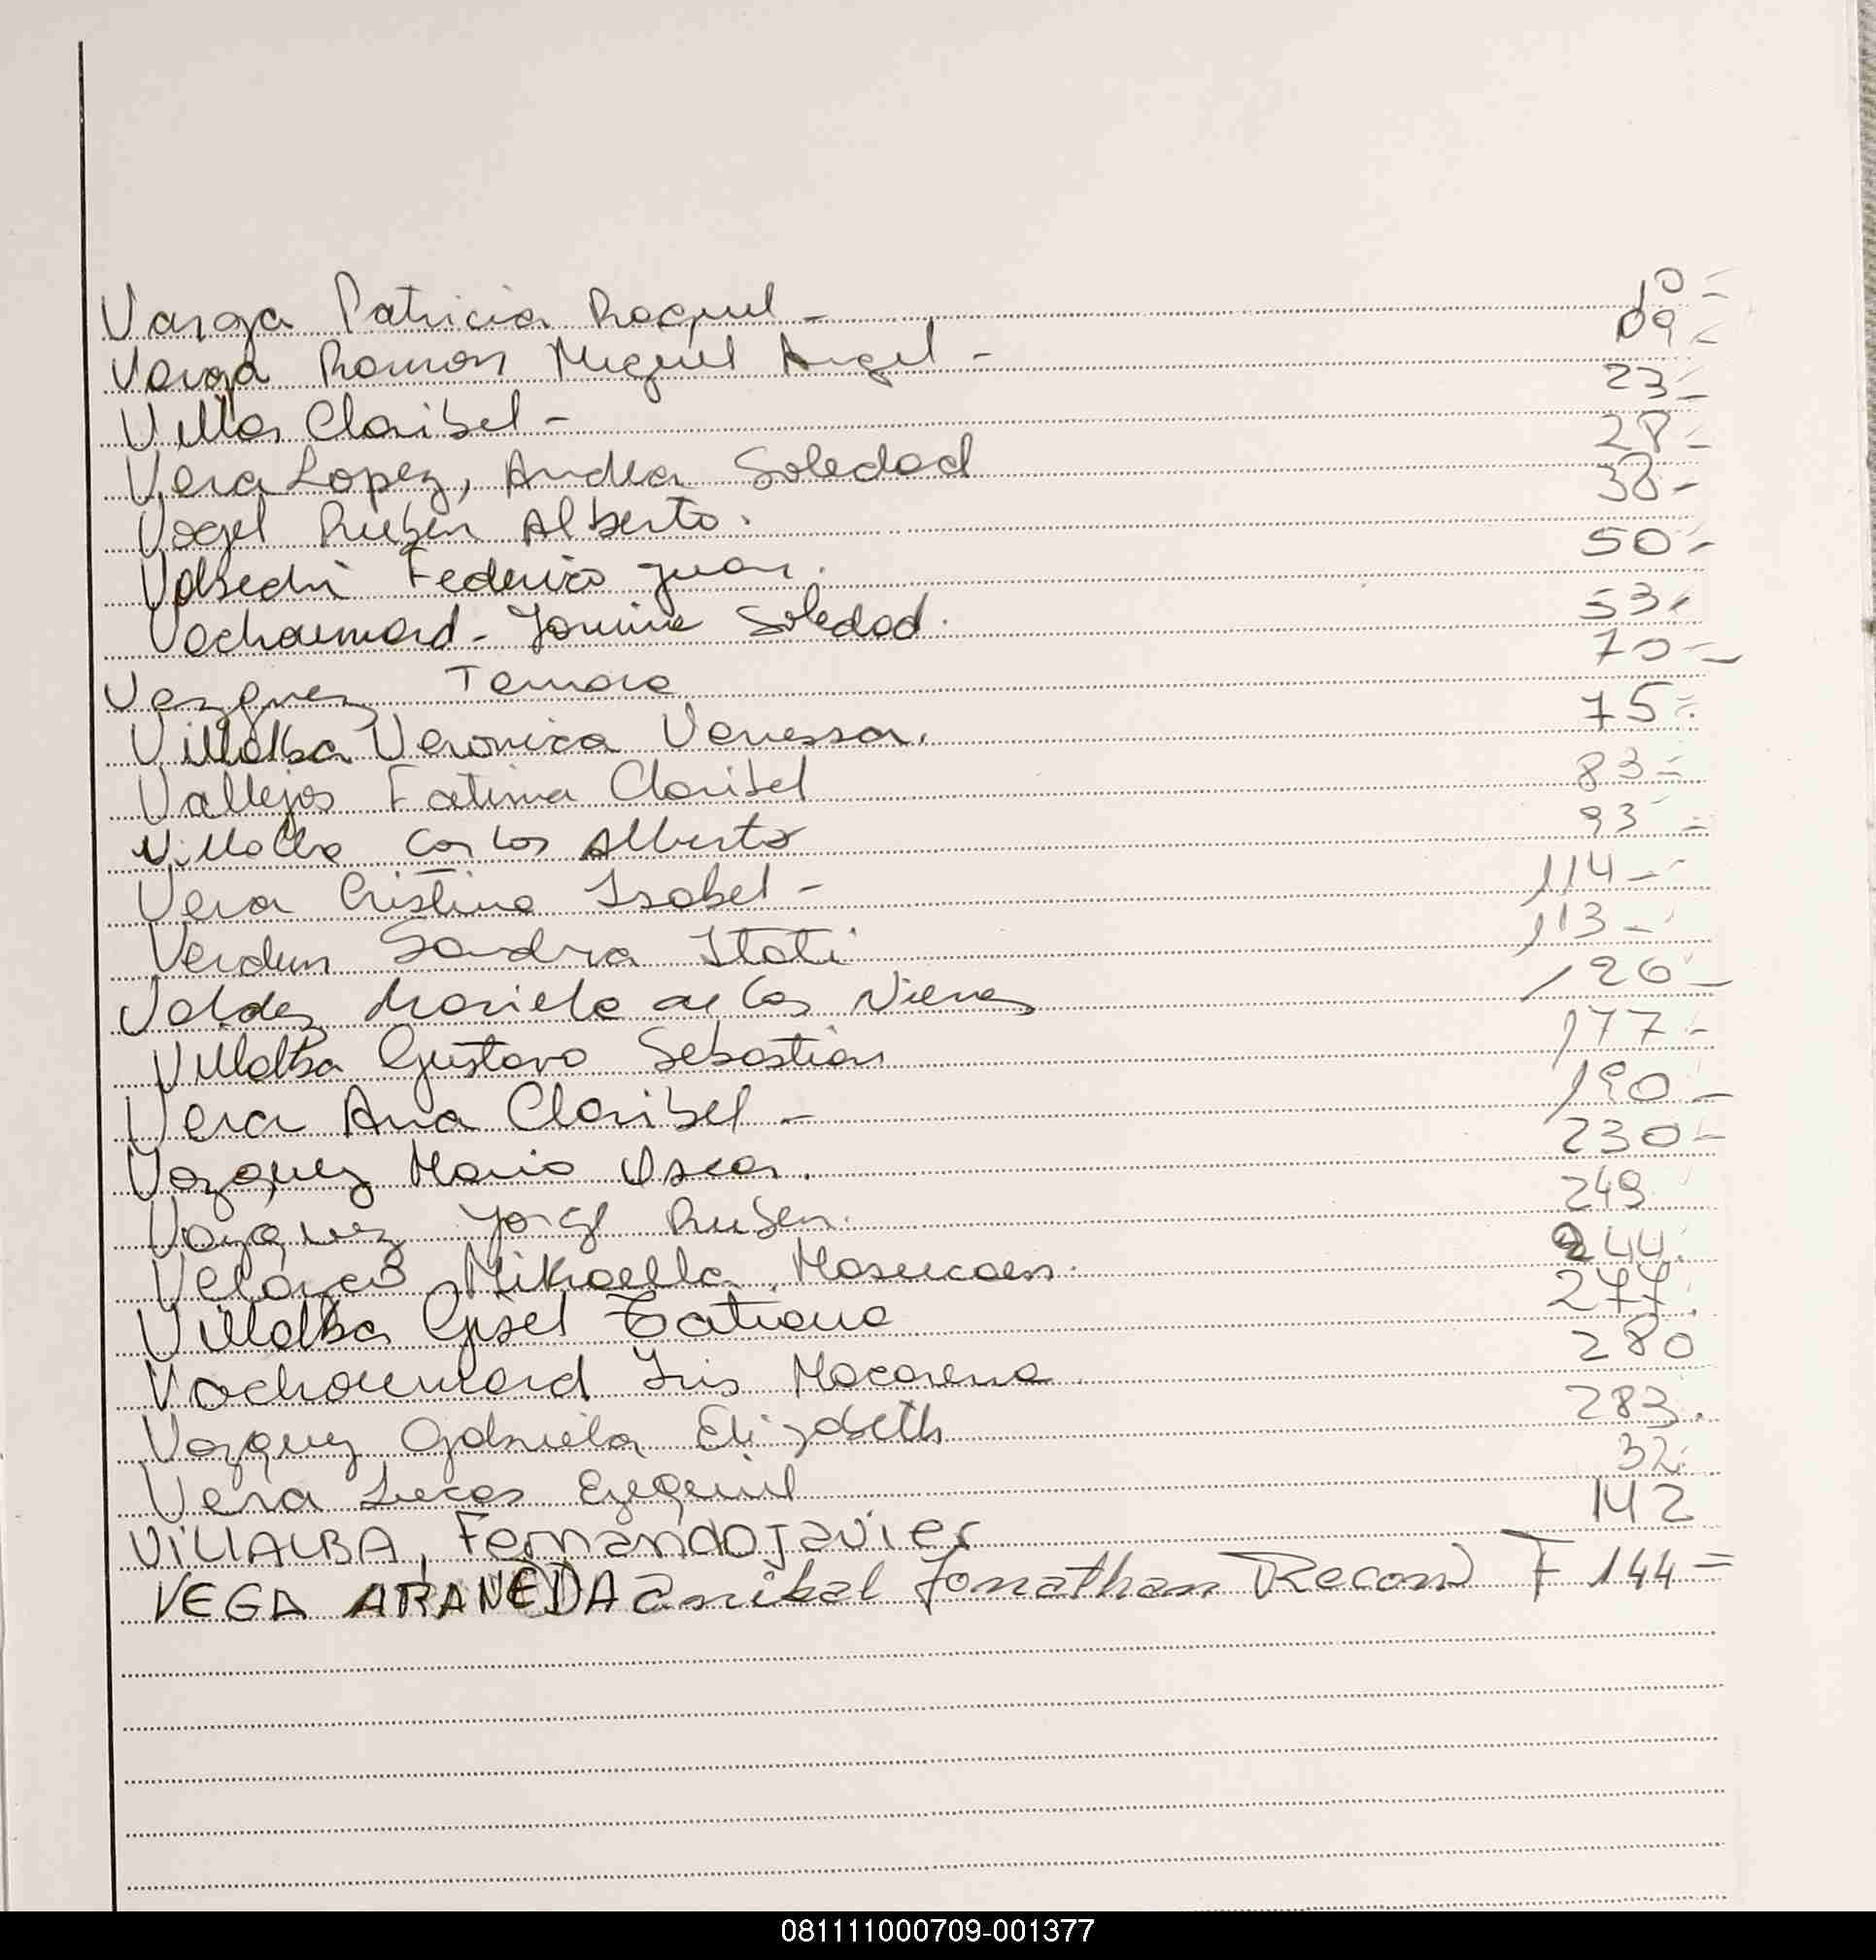 Varga Patricia Raquel - 10 =
Varga Ramon Miguel Angel - 09 -
Villa Claribel - 23 -
Vera Lopez, Andrea Soledad 28 -
Vogel Ruben Alberto. 38 -
Federico Juan. 50 -
Vachaumard - Soledad. 53 -
Vazquez Tamara 70 -
Villalba Veronica Vanessa. 75 =
Vallejos Fatima Claribel 83 =
Villalba Carlos Alberto 93 =
Vera Cristina Isabel - 114 -
Verdun Sandra Itati 113 -
Valdez Mariela de las Nieves 126 -
Villalba Gustavo Sebastian 177 -
Vera Ana Claribel - 190 -
Vazquez Mario Oscar. 230 -
Vazquez Jorge Ruben. 249
Mikaella 244.
Villalba Gisel Tatiana 277.
Vachaumard Iris Macarena 280
Vazquez Gabriela Elizabeth 283.
Vera Lucas Ezequiel 32.
ViLLALBA, Fernando Javier 142
VEGA ARANEDA anibal Jonathan Recon F 144 =
081111000709-001377